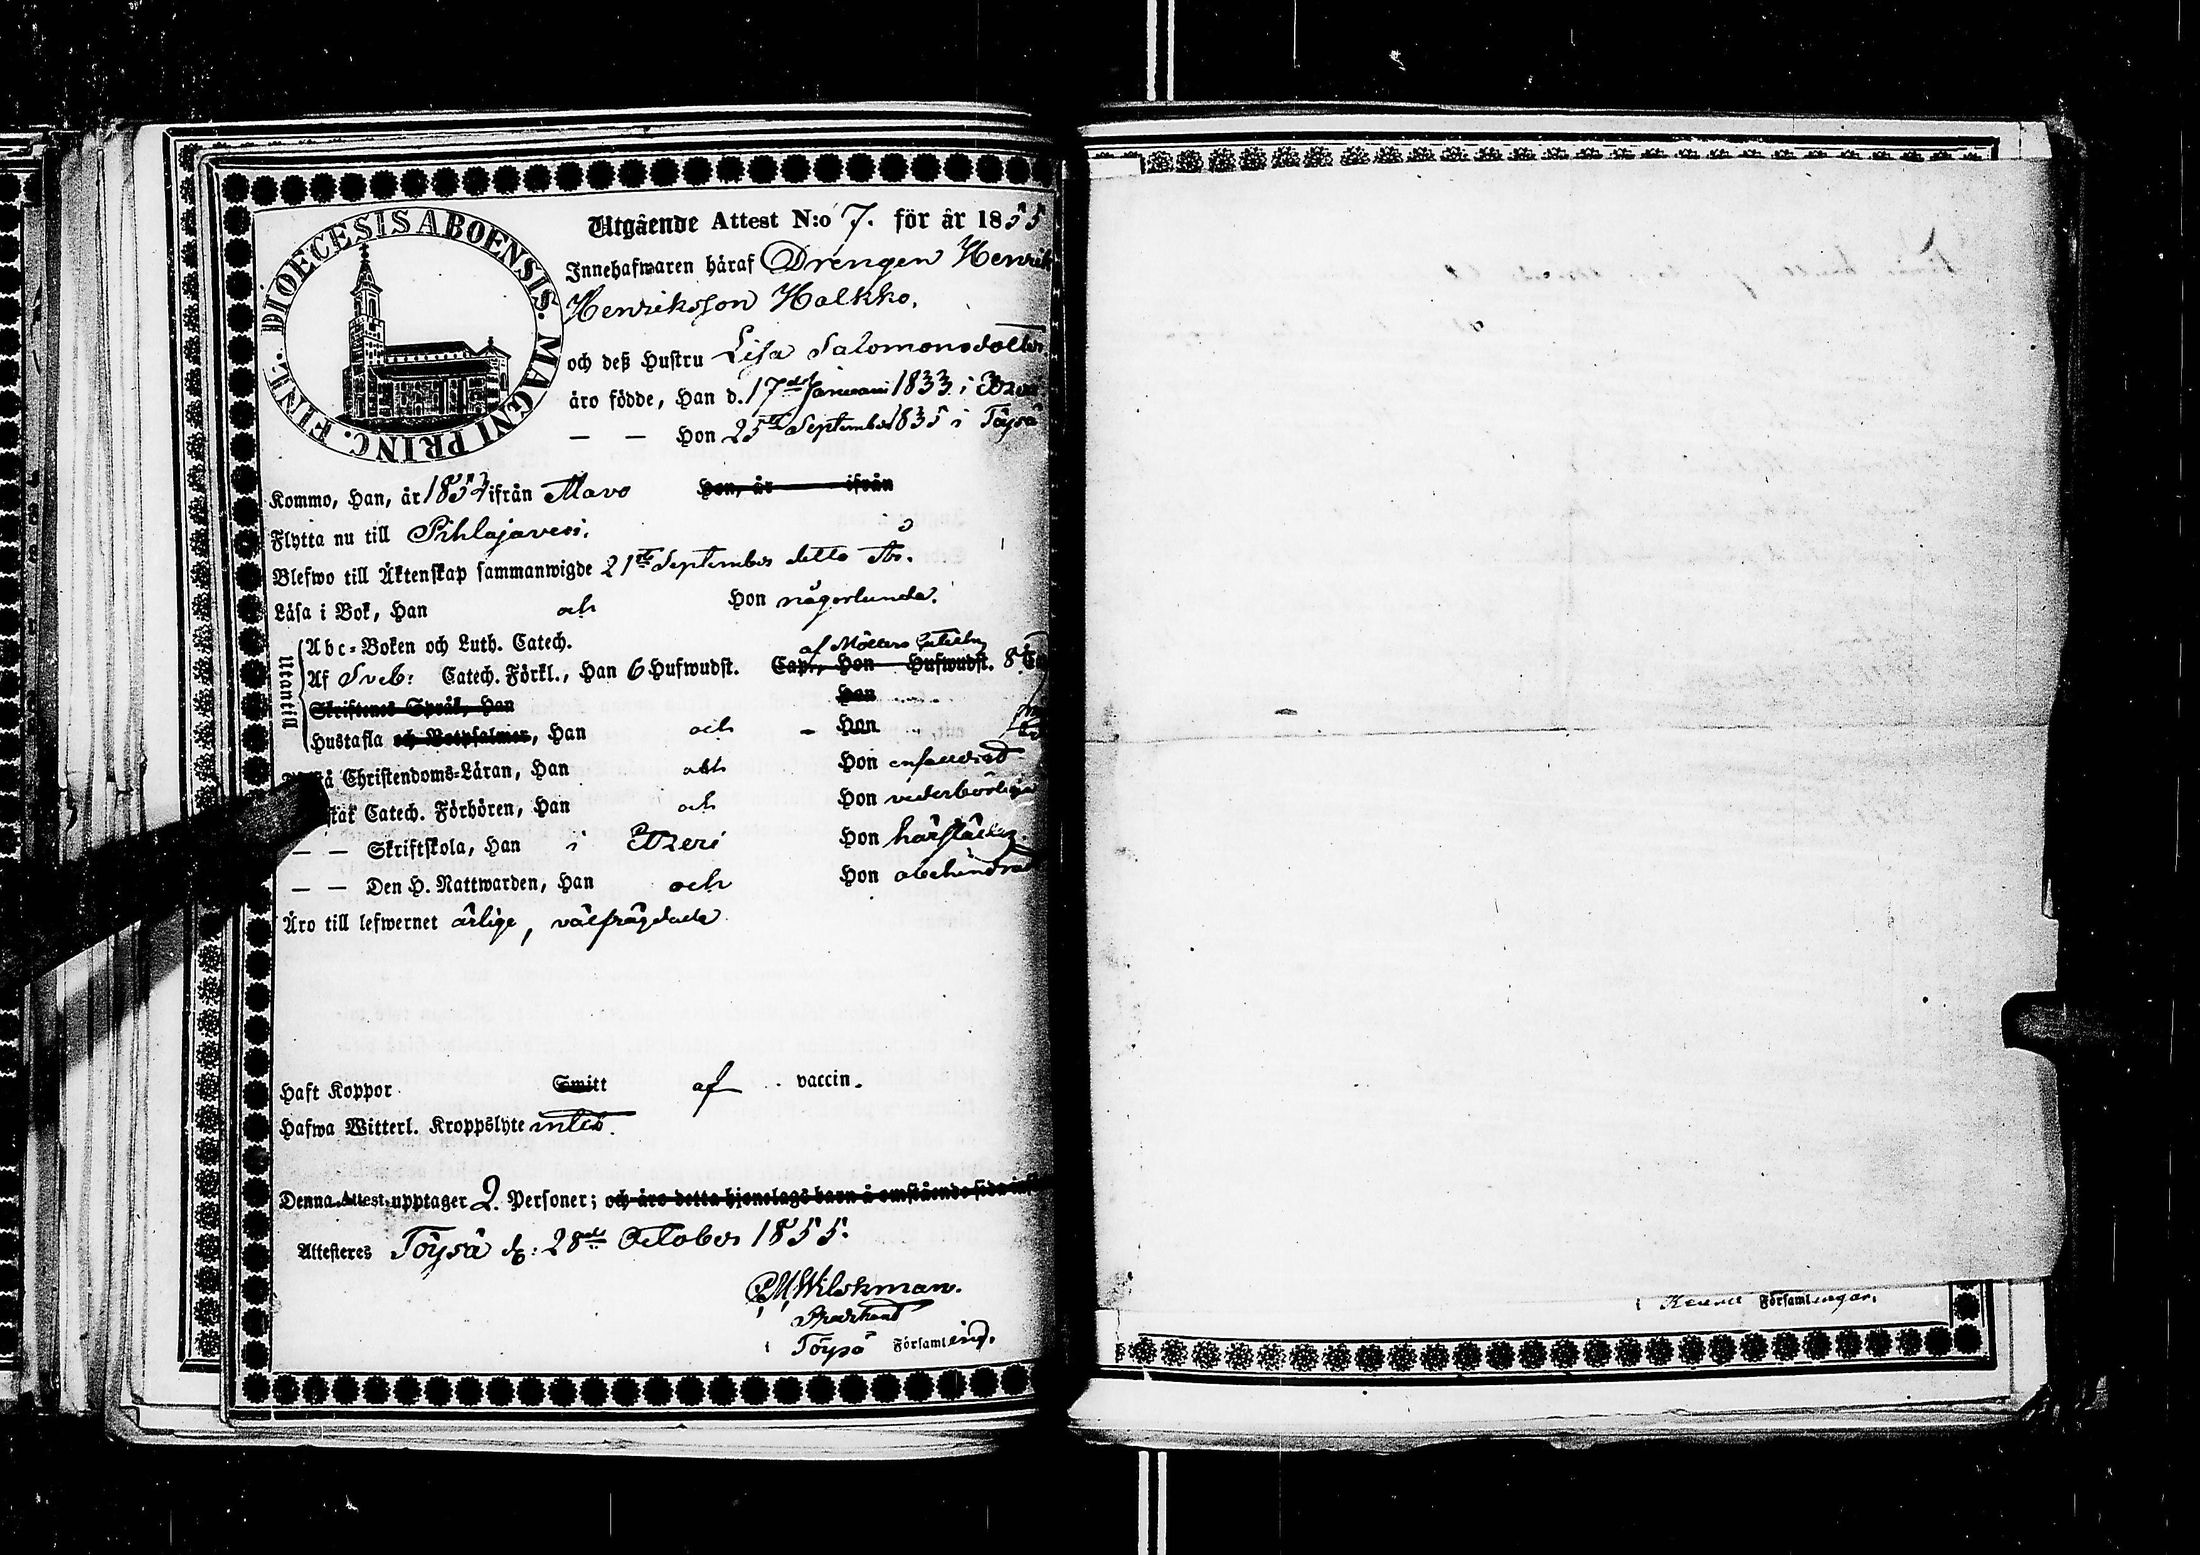 DIOECESIS ABOENSIS. MAGNI PRINC. FINL.
Utgående Attest N:o 7. för år 1855
Innehafwaren håraf Drengen Henrik
Henriksson Halkko.
och deß Hustru Lisa Salomonsdotter
äro födde, Han d. 17de Januari 1833 i
— — Hon 25te September 1835 i Töysä
Kommo, Han, år 1853 ifrån Alavo Hon, år ifrån
Flytta nu till Pihlajavesi.
Blefwo till Äktenskap sammanwigde 21ste September detta År.
Läsa i Bok, Han och Hon någorlunda.
Utantill
Abc-Boken och Luth. Catech.
af Möllers
Af Sveb: Catech. Förkl., Han 6 Hufwudst. Cap., Hon Hufwudst. 8
Skriftenes Språk, Han Hon
Hustafla och Botpsalmer, Han och - Hon
å Christendoms-Läran, Han och Hon enfaldigt
Catech. Förhören, Han och Hon vederbörligen
— — Skriftskola, Han i Etzeri Hon härstädes.
— — Den H. Nattwarden, Han och Hon obehindrad
Äro till lefwernet ärlige, välfrägdade
Haft Koppor Smitt af vaccin.
Hafwa Witterl. Kroppslyte intet.
Denna Attest upptager 2. Personer; och äro detta hjonelags barn å omstående sida
Attesteres Töysä d: 28de October 1855.
Töysä Församling.
i Keuru Församlingar.